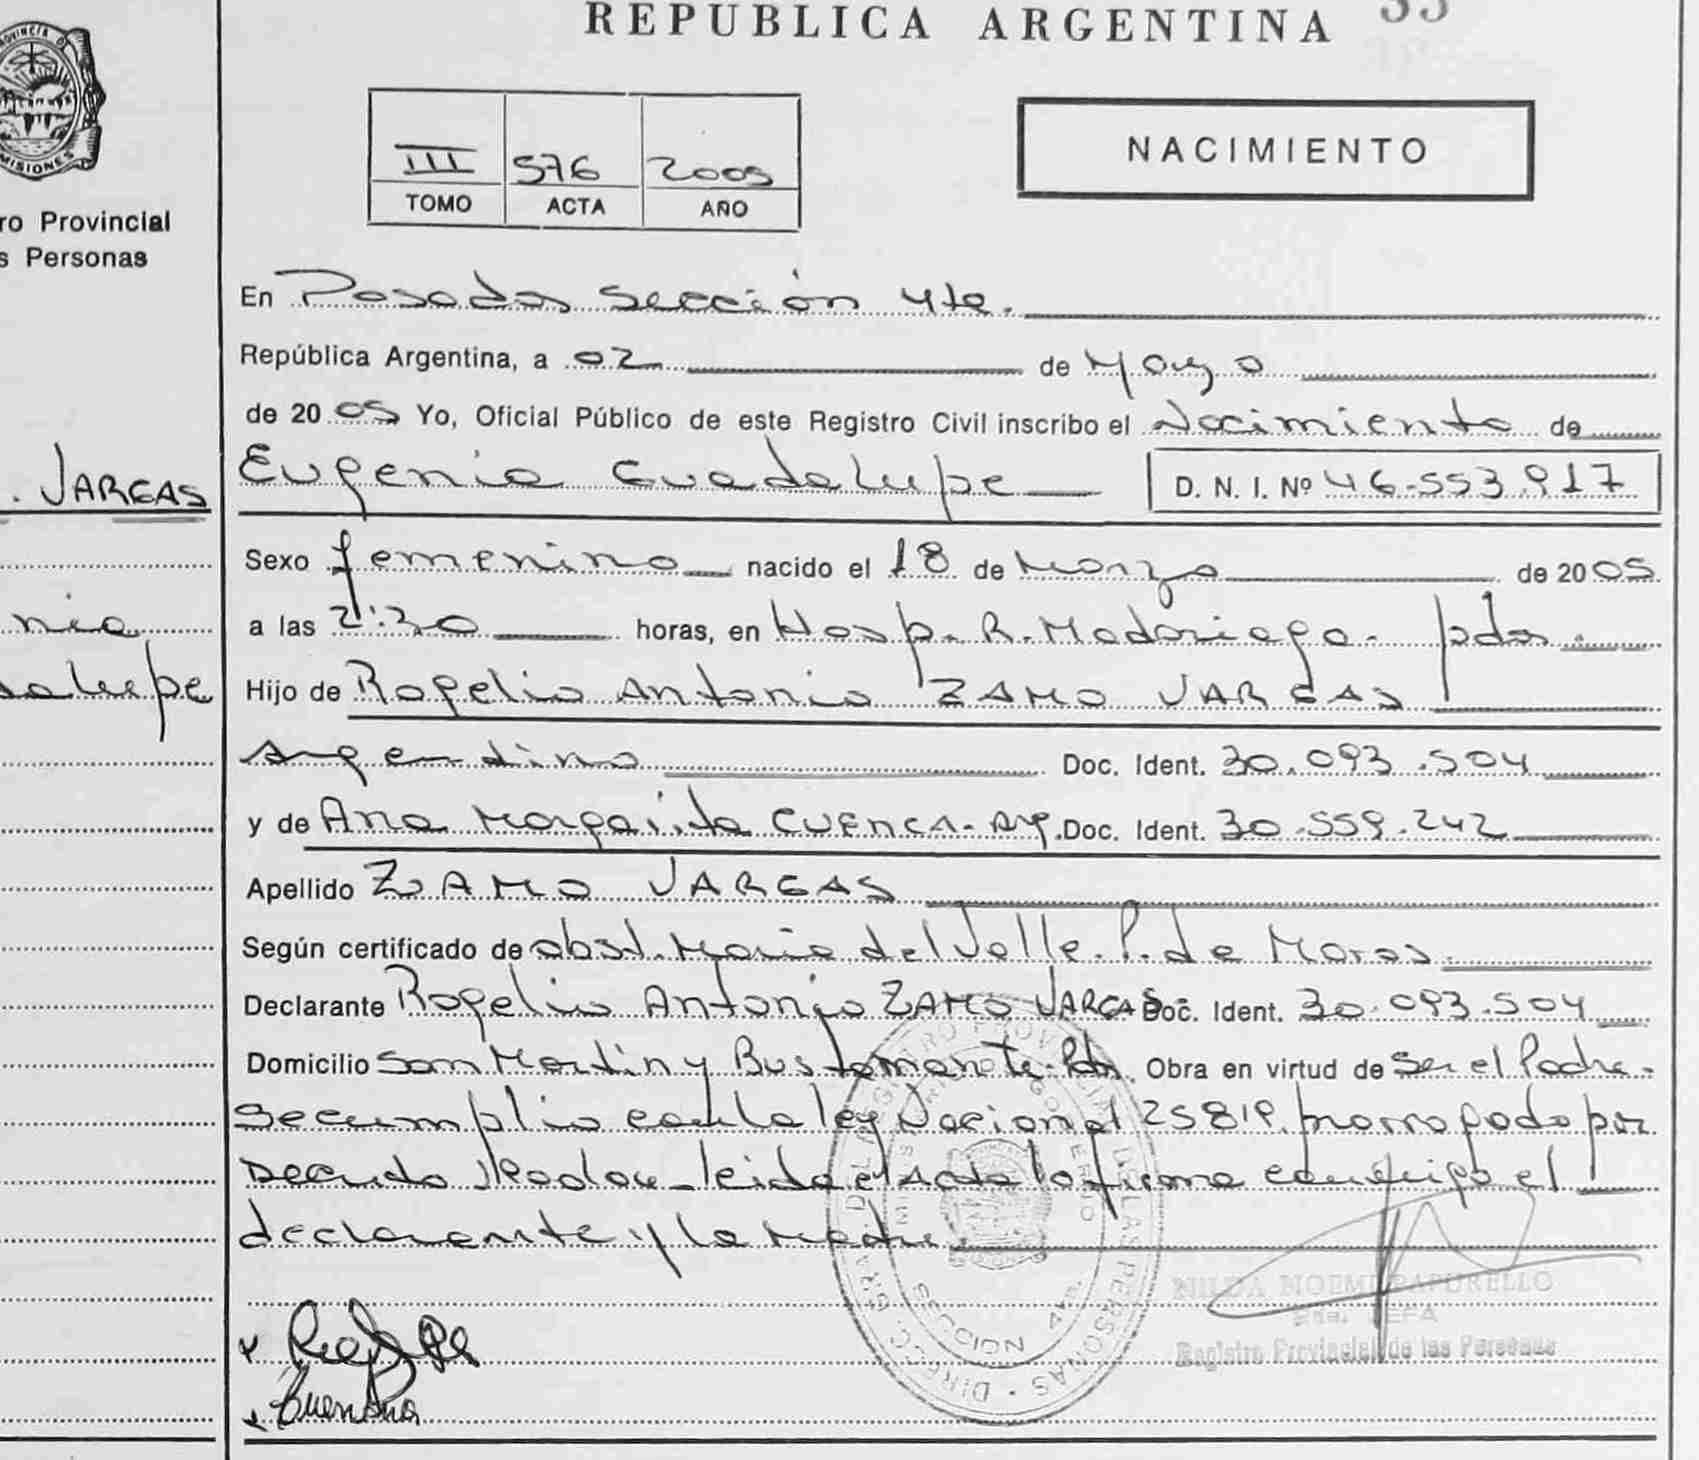 REPUBLICA ARGENTINA
PROVINCIA DE
MISIONES
ro Provincial
s Personas
. VARGAS
nia
alupe
III 576 2005
TOMO ACTA AÑO
NACIMIENTO
En Posadas Sección 4ta.
República Argentina, a 02 de Mayo
de 2005 Yo, Oficial Público de este Registro Civil inscribo el Nacimiento de
Eugenia Guadalupe D. N. I. Nº 46.553.917
Sexo femenino nacido el 18 de Marzo de 2005
a las 2:30 horas, en Hosp. R. Madariaga - pdas.
Hijo de Rogelio Antonio ZAMO VARGAS
Argentino Doc. Ident. 30.093.504
y de Ana Margarita CUENCA - Arg. Doc. Ident. 30.559.242
Apellido ZAMO VARGAS
Según certificado de obst. Maria del Valle P. de Moras
Declarante Rogelio Antonio ZAMO VARGAS Doc. Ident. 30.093.504
Domicilio San Martin y Bustamante - Pdas. Obra en virtud de ser el Padre -
se cumplio con la ley Nacional 25819 prorrogado por
Decreto leida el acta la firma conmigo el
declarante y la Madre.
NILDA NOEMI
JEFA
Registro Provincial de las Personas
SECCION 4ta